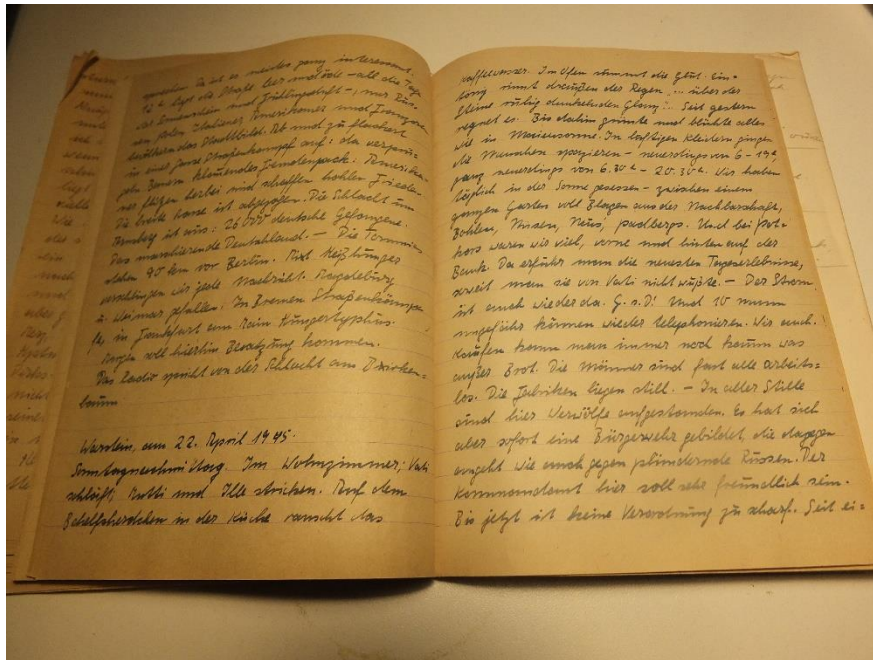 sprechen. Da ist es meistes ganz interessant.
12 h liegt die Straße hier und öde – all die Tage
der Sonnenschein und Frühlingsduft –, nur Rus-
sen, Polen, Italiener, Amerikaner und Franzosen
bevölkern das Stadtbild. Ab und zu flackert
in eine Straßenkampf auf: da verprü-
geln Bauern klauendes Fremdenpack. Amerika-
ner flitzen herbei und schaffen Frieden.
Die breite ist abgezogen. Die Schlacht um
ist aus: 26000 deutsche Gefangene.
Das marschierende Deutschland. – Die
stehen 90 km vor Berlin. Mit Heißhunger
verschlingen wir jede Nachricht. Magdeburg
u. Weimar gefallen. In Bremen Straßenkämp-
fe, in Frankfurt am Main Hungertyphus.
Morgen soll hierhin Besatzung kommen.
Das Radio spricht von der Schlacht am Birken-
baum
am 22. April 1945.
Sonntagnachmittag. Im Wohnzimmer; Vati
schläft, Mutti und Ille stricken. Auf dem
in der Küche rauscht das
Kaffeewasser. Im Ofen summt die Glut. Ein-
tönig rinnt draußen der Regen, „... über der
Steine ruhig dunkelnden Glanz". Seit gestern
regnet es. Bis dahin grünte und blühte alles
wie in Maiensonne. In luftigen Kleidern gingen
die Menschen spazieren – neuerdings von 6 – 19 h,
ganz neuerdings von 6.30 h – 20.30 h. Wir haben
täglich in der Sonne gesessen – zwischen einem
ganzen Garten voll Blagen aus der Nachbarschaft,
Bohlen, Nissen, Neus, Und bei
waren wir viel, vorne und hinten auf der
Bank. Da erfuhr man die neuesten Tageserlebnisse,
soweit man sie von Vati nicht wußte. – Der Strom
ist auch wieder da. G. s. D! Und 10 Mann
ungefähr können wieder telephonieren. Wir auch.
Kaufen kann man immer noch kaum was
außer Brot. Die Männer sind fast alle arbeits-
los. Die Fabriken liegen still. – In aller Stille
sind hier Werwölfe aufgestanden. Es hat sich
aber sofort eine Bürgerwehr gebildet, die dagegen
angeht wie auch gegen plündernde Russen. Der
Kommandant hier soll sehr freundlich sein.
Bis jetzt ist keine Verordnung zu scharf. Seit ei-